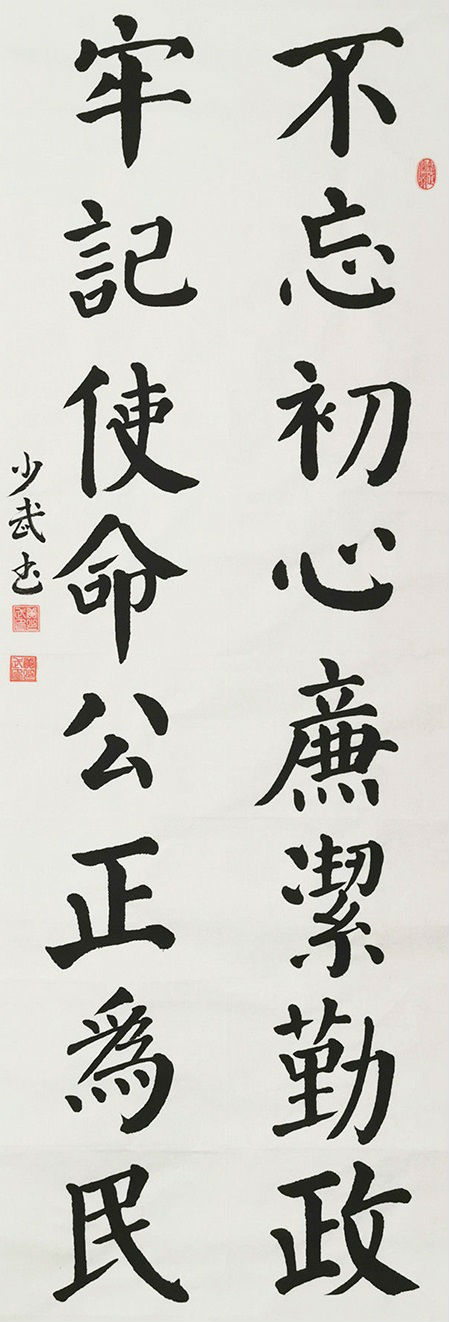 不忘初心廉潔勤政
牢記使命公正為民
少武书